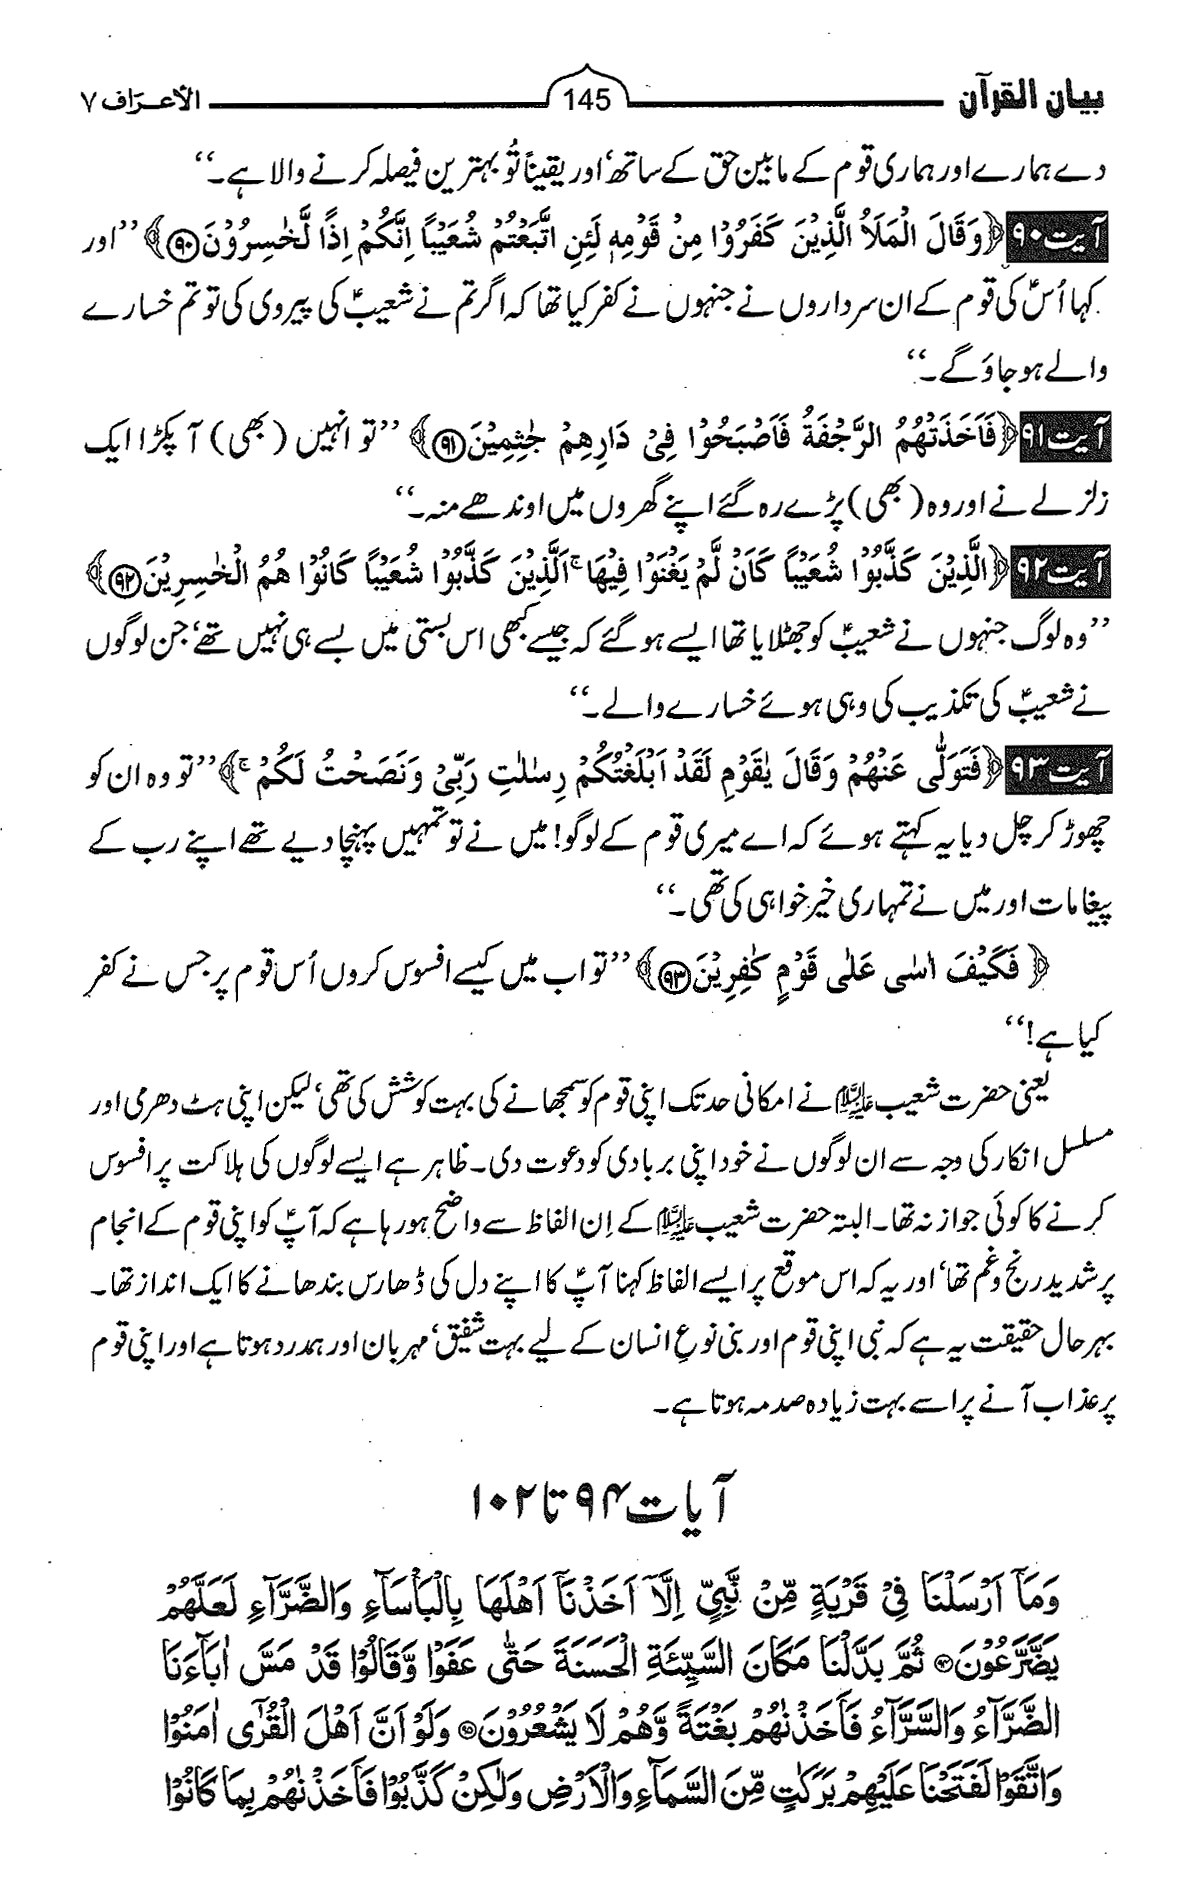 بیان القرآن 145 الاعراف ۷
دے ہمارے اور ہماری قوم کے مابین حق کے ساتھ‘ اور یقیناً تُو بہترین فیصلہ کرنے والا ہے۔‘‘
آیت ۹۰ ﴿وَقَالَ الْمَلَاُ الَّذِیْنَ كَفَرُوْا مِنْ قَوْمِهٖ لَئِنِ اتَّبَعْتُمْ شُعَیْبًا اِنَّكُمْ اِذًا لَّخٰسِرُوْنَ ۹۰﴾ ’’اور
کہا اُسؑ کی قوم کے ان سرداروں نے جنہوں نے کفر کیا تھا کہ اگر تم نے شعیبؑ کی پیروی کی تو تم خسارے
والے ہو جاؤ گے۔‘‘
آیت ۹۱ ﴿فَاَخَذَتْهُمُ الرَّجْفَةُ فَاَصْبَحُوْا فِیْ دَارِهِمْ جٰثِمِیْنَ ۹۱﴾ ’’تو انہیں (بھی) آ پکڑا ایک
زلزلے نے اور وہ (بھی) پڑے رہ گئے اپنے گھروں میں اوندھے منہ۔‘‘
آیت ۹۲ ﴿الَّذِیْنَ كَذَّبُوْا شُعَیْبًا كَاَنْ لَّمْ یَغْنَوْا فِیْهَا ۚ اَلَّذِیْنَ كَذَّبُوْا شُعَیْبًا كَانُوْا هُمُ الْخٰسِرِیْنَ ۹۲﴾
’’وہ لوگ جنہوں نے شعیبؑ کو جھٹلایا تھا ایسے ہو گئے کہ جیسے کبھی اس بستی میں بسے ہی نہیں تھے‘ جن لوگوں
نے شعیبؑ کی تکذیب کی وہی ہوئے خسارے والے۔‘‘
آیت ۹۳ ﴿فَتَوَلّٰی عَنْهُمْ وَقَالَ یٰقَوْمِ لَقَدْ اَبْلَغْتُكُمْ رِسٰلٰتِ رَبِّیْ وَنَصَحْتُ لَكُمْ ۚ﴾ ’’تو وہ ان کو
چھوڑ کر چل دیا یہ کہتے ہوئے کہ اے میری قوم کے لوگو! میں نے تو تمہیں پہنچا دیے تھے اپنے رب کے
پیغامات اور میں نے تمہاری خیر خواہی کی تھی۔‘‘
﴿فَكَیْفَ اٰسٰی عَلٰی قَوْمٍ كٰفِرِیْنَ ۹۳﴾ ’’تو اب میں کیسے افسوس کروں اُس قوم پر جس نے کفر
کیا ہے!‘‘
یعنی حضرت شعیب علیہ السلام نے امکانی حد تک اپنی قوم کو سمجھانے کی بہت کوشش کی تھی‘ لیکن اپنی ہٹ دھرمی اور
مسلسل انکار کی وجہ سے ان لوگوں نے خود اپنی بربادی کو دعوت دی۔ ظاہر ہے ایسے لوگوں کی ہلاکت پر افسوس
کرنے کا کوئی جواز نہ تھا۔ البتہ حضرت شعیب علیہ السلام کے اِن الفاظ سے واضح ہو رہا ہے کہ آپؑ کو اپنی قوم کے انجام
پر شدید رنج و غم تھا‘ اور یہ کہ اس موقع پر ایسے الفاظ کہنا آپؑ کا اپنے دل کی ڈھارس بندھانے کا ایک انداز تھا۔
بہرحال حقیقت یہ ہے کہ نبی اپنی قوم اور بنی نوعِ انسان کے لیے بہت شفیق‘ مہربان اور ہمدرد ہوتا ہے اور اپنی قوم
پر عذاب آنے پر اسے بہت زیادہ صدمہ ہوتا ہے۔
آیات ۹۴ تا ۱۰۲
وَمَاۤ اَرْسَلْنَا فِیْ قَرْیَةٍ مِّنْ نَّبِیٍّ اِلَّاۤ اَخَذْنَاۤ اَهْلَهَا بِالْبَاْسَآءِ وَالضَّرَّآءِ لَعَلَّهُمْ
یَضَّرَّعُوْنَ ۹۴ ثُمَّ بَدَّلْنَا مَكَانَ السَّیِّئَةِ الْحَسَنَةَ حَتّٰی عَفَوْا وَّقَالُوْا قَدْ مَسَّ اٰبَآءَنَا
الضَّرَّآءُ وَالسَّرَّآءُ فَاَخَذْنٰهُمْ بَغْتَةً وَّهُمْ لَا یَشْعُرُوْنَ ۹۵ وَلَوْ اَنَّ اَهْلَ الْقُرٰۤی اٰمَنُوْا
وَاتَّقَوْا لَفَتَحْنَا عَلَیْهِمْ بَرَكٰتٍ مِّنَ السَّمَآءِ وَالْاَرْضِ وَلٰكِنْ كَذَّبُوْا فَاَخَذْنٰهُمْ بِمَا كَانُوْا